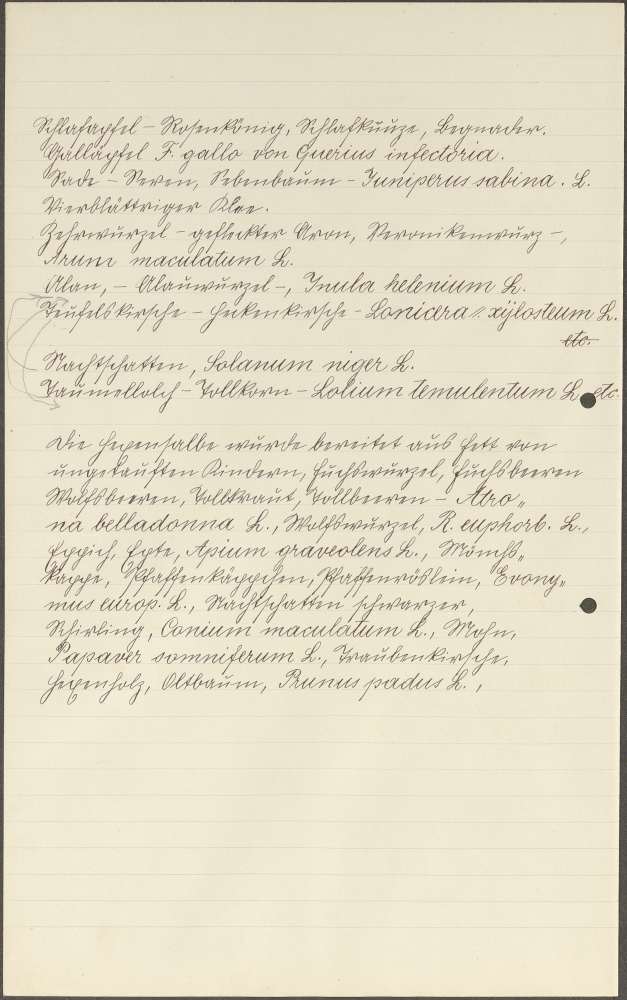 Schlafapfel – Rosenkönig, Schlafkunze, Begnader.
Galläpfel F. gallo von Querius infectoria.
Sade – Seven, Sebenbaum – Juniperus sabina. L.
Vierblättriger Klee.
Zehrwurzel – gefleckter Aron, Veronikenwurz –,
Arum maculatum L.
Alan, – Alauwurzel –, Inula helenium L.
Teufelskirsche – Heckenkirsche – Lonicera xylosteum L.
etc.
Nachtschatten, Solanum niger L.
Taumellolch – Tollkorn – Lolium temulentum L. etc.
Die Hexensalbe wurde bereitet aus Fett von
ungetauften Kindern, Fuchswurzel, Fuchsbeeren
Wolfsbeeren, Tollkraut, Tollbeeren – Atro„
na belladonna L., Wolfswurzel, R. euphorb. L.,
Eppich, Epte, Apium graveolens L., Mönchs„
kappe, Pfaffenkäppchen, Pfaffenröslein, Evony„
mus europ. L., Nachtschatten schwarzer,
Schirling, Conium maculatum L., Mohn,
Papaver somniferum L., Traubenkirsche,
Hexenholz, Oltbaum, Prunus padus L.,